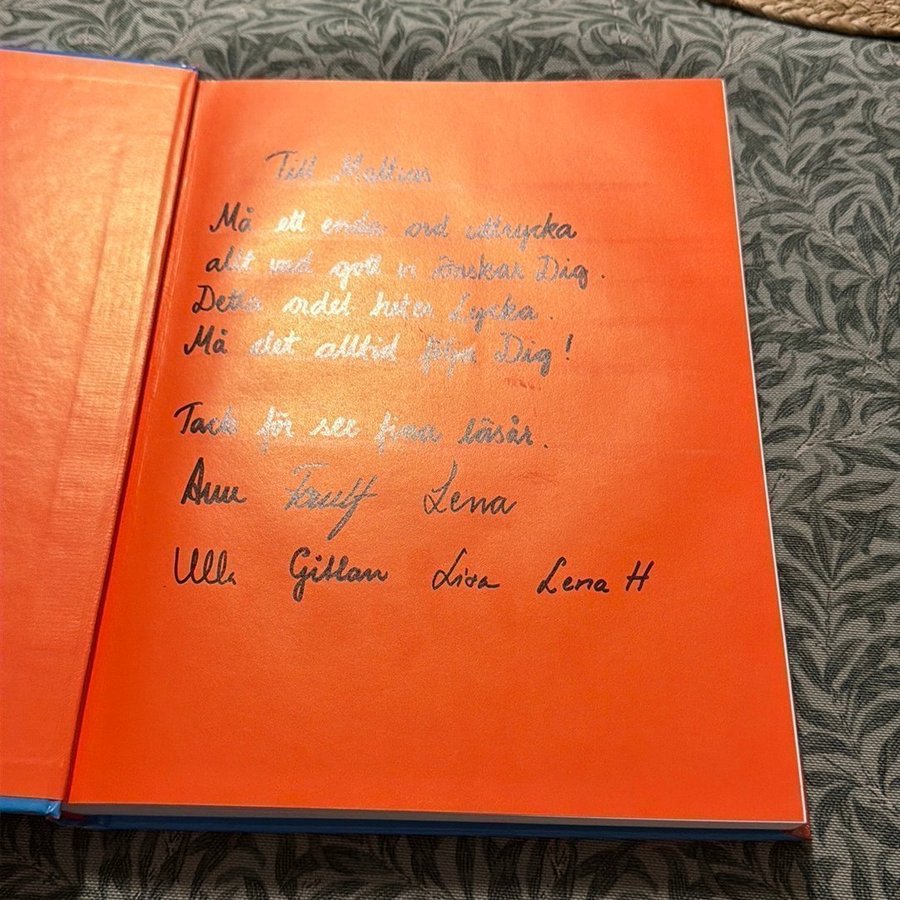 Till Mattias
Må ett enda ord uttrycka
allt vad gott vi önskar Dig.
Detta ordet heter Lycka.
Må det alltid följa Dig!
Tack för sex fina läsår.
Ann Lena
Ulla Gittan Lisa Lena H